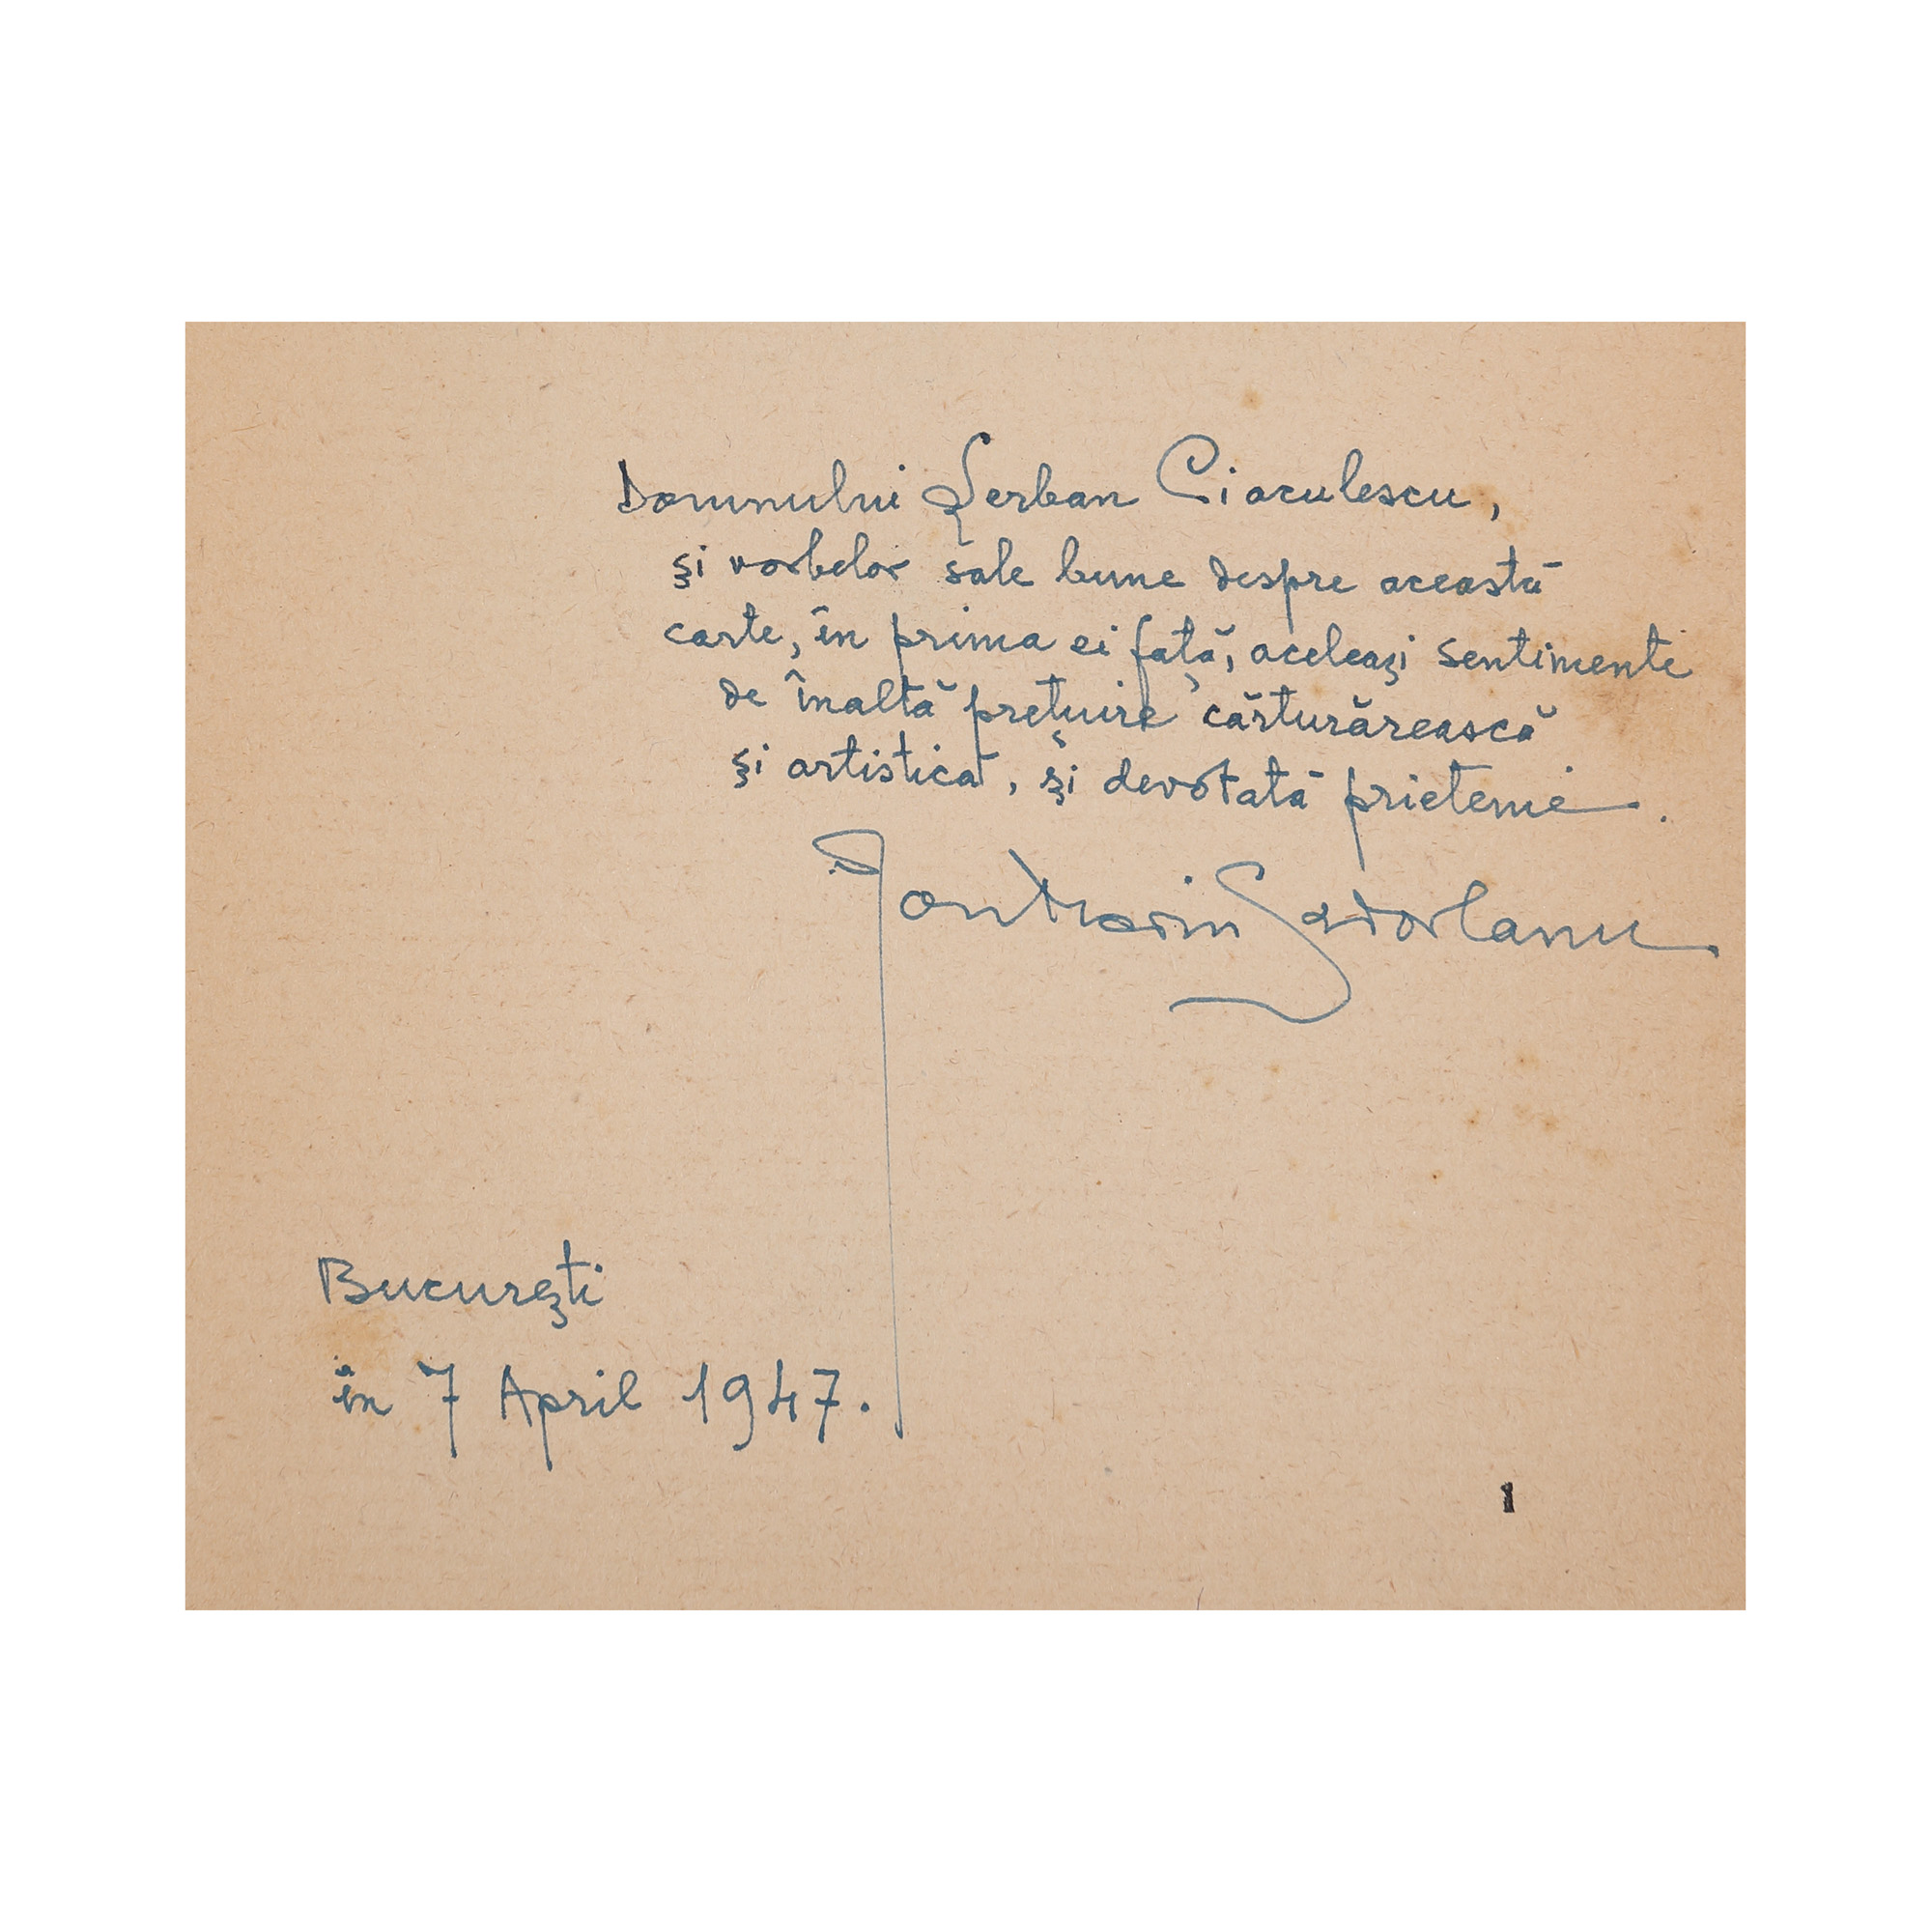 Domnului Șerban Cioculescu,
și vorbelor sale bune despre această
carte, în prima ei față, aceleași sentimente
de înaltă prețuire cărturărească
și artistică, și devotată prietenie.
Ion Marin Sadoveanu
București
în 7 April 1947.
1